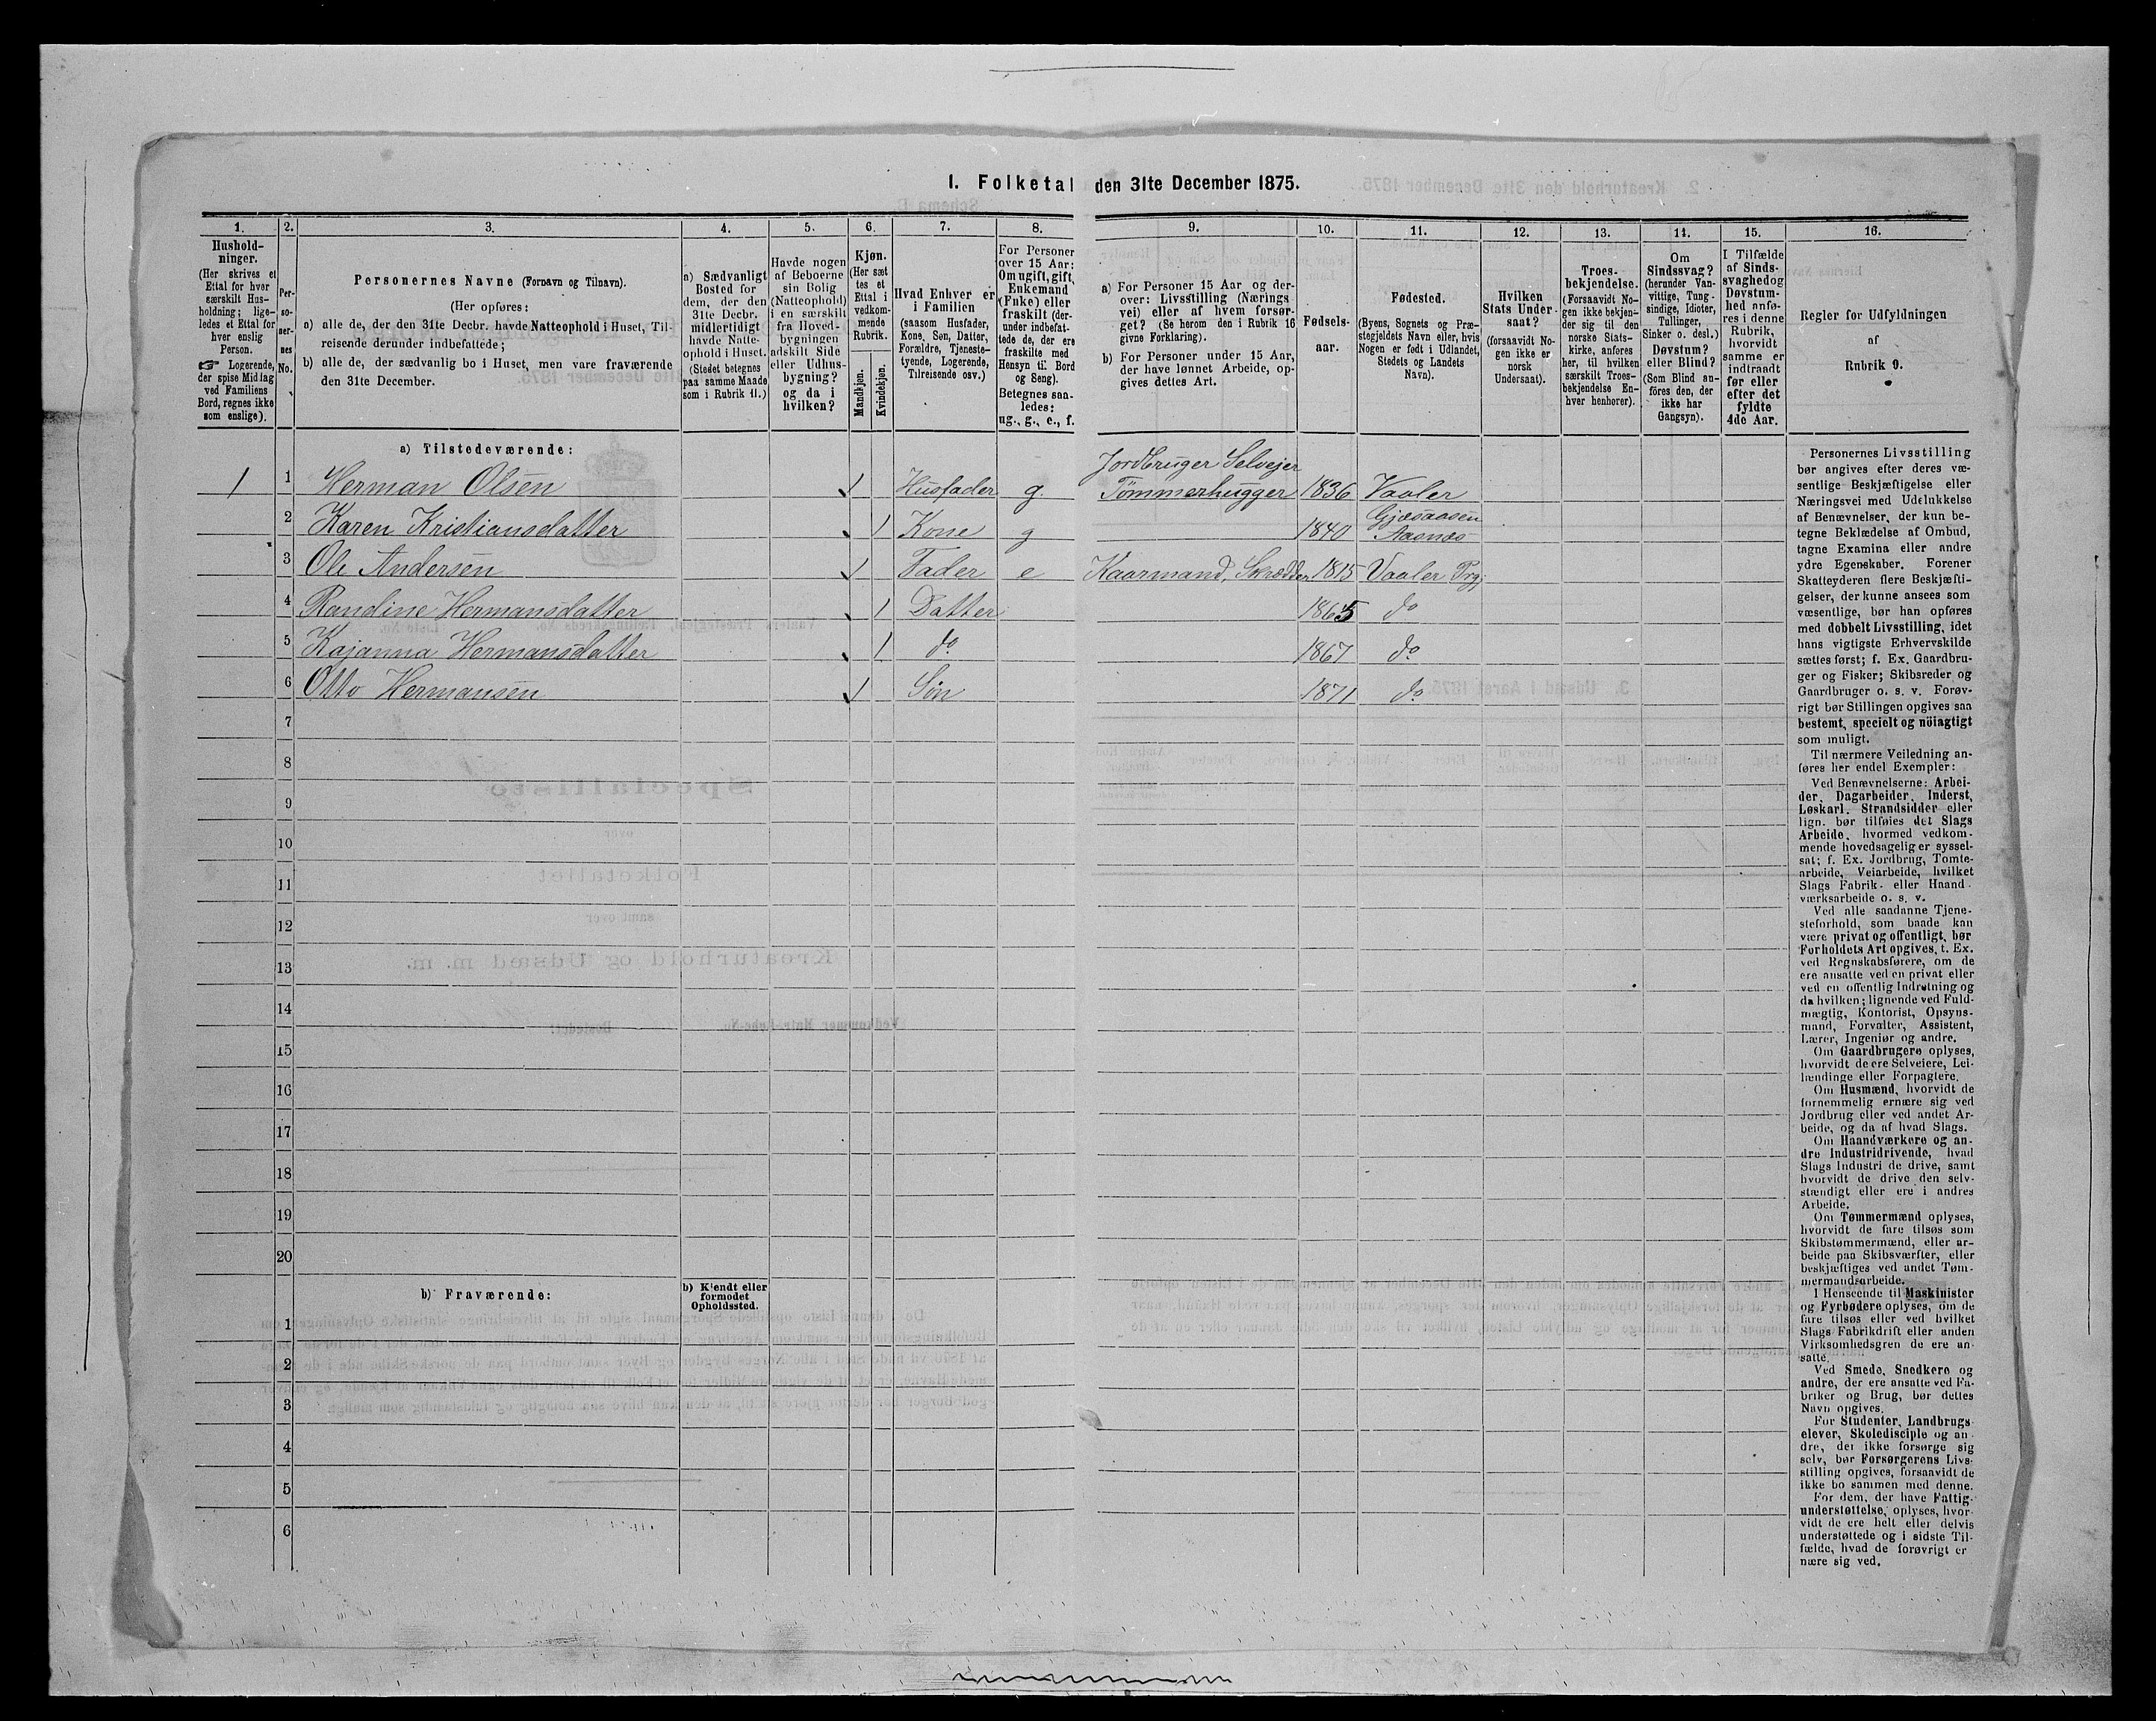 1. Folketal den 31te December 1875.
1.
2.
3.
4.
5.
6.
7.
8.
9.
10.
11.
12.
13.
14.
15.
16.
Hushold-
ninger.
(Her skrives et
Ettal for hver
særskilt Hus-
holdning; lige-
ledes et Ettal for
hver enslig
Person.
☞ Logerende,
der spise Middag
ved Familiens
Bord, regnes ikke
som enslige).
Per-
so-
ner-
nes
No.
Personernes Navne (Fornavn og Tilnavn).
(Her opføres:
a) alle de, der den 31te Decbr. havde Natteophold i Huset, Til-
reisende derunder indbefattede;
b) alle de, der sædvanlig bo i Huset, men vare fraværende
den 31te December.
a) Sædvanligt
Bosted for
dem, der den
31te Decbr.
midlertidigt
havde Natte-
ophold i Huset.
(Stedet betegnes
paa samme Maade
som i Rubrik 11.)
Havde nogen
af Beboerne
sin Bolig
(Natteophold)
i en særskilt
fra Hoved-
bygningen
adskilt Side
eller Udhus-
bygning?
og da i
hvilken?
Kjøn.
(Her sæt
tes et
Ettal i
vedkom-
mende
Rubrik.
Mandkjøn.
Kvindekjøn.
Hvad Enhver er
i Familien
(saasom Husfader,
Kone, Søn, Datter,
Forældre, Tjeneste-
tyende, Logerende,
Tilreisende osv.)
For Personer
over 15 Aar:
Om ugift, gift,
Enkemand
(Enke) eller
fraskilt (der-
under indbefat-
tede de, der ere
fraskilte med
Hensyn til Bord
og Seng).
Betegnes saa-
ledes:
ug., g., e., f.
a) For Personer 15 Aar og der-
over: Livsstilling (Nærings
vei) eller af hvem forsør-
get? (Se herom den i Rubrik 16
givne Forklaring).
b) For Personer under 15 Aar,
der have lønnet Arbeide, op-
gives dettes Art.
Fødsels-
aar.
Fødested.
(Byens, Sognets og Præ-
stegjeldets Navn eller, hvis
Nogen er født i Udlandet,
Stedets og Landets
Navn).
Hvilken
Stats Under-
saat?
(forsaavidt No-
gen ikke er
norsk
Undersaat).
Troes-
bekjendelse.
(Forsaavidt No-
gen ikke bekjen-
der sig til den
norske Stats-
kirke, anføres
her, til hvilken
særskilt Troes-
bekjendelse En-
hver henhører).
Om
Sindssvag?
(herunder Van-
vittige, Tung-
sindige, Idioter,
Tullinger,
Sinker o. desl.)
Døvstum?
eller Blind?
(Som Blind an-
føres den, der
ikke har
Gangsyn).
I Tilfælde
af Sinds-
svaghed og
Døvstum-
hed anfø-
res i denne
Rubrik,
hvorvidt
samme er
indtraadt
før eller
efter det
fyldte
4de Aar.
Regler for Udfyldningen
af
Rubrik 9.
a) Tilstedeværende:
Jordbruger Selvejer
1 1 Herman Olsen 1 Husfader g. Tømmerhugger 1836 Vaaler
Gjæsaasen
2 Karen Kristiansdatter 1 Kone g 1840 Aasnæs
3 Ole Andersen 1 Fader e Kaarmand, Skrædder 1815 Vaaler Prg:
4 Randine Hermansdatter 1 Datter 1865 do
5 Kajanna Hermansdatter 1 do 1867 do
6 Otto Hermansen 1 Søn 1871 do
7
8
9
10
11
12
13
14
15
16
17
18
19
20
b) Fraværende:
b) Kjendt eller
formodet
Opholdssted.
1
2
3
4
5
6
Personernes Livsstilling
bør angives efter deres væ-
sentlige Beskjæftigelse eller
Næringsvei med Udelukkelse
af Benævnelser, der kun be-
tegne Beklædelse af Ombud,
tagne Examina eller andre
ydre Egenskaber. Forener
Skatteyderen flere Beskjæfti-
gelser, der kunne ansees som
væsentlige, bør han opføres
med dobbelt Livsstilling, idet
hans vigtigste Erhvervskilde
sættes først; f. Ex. Gaardbru-
ger og Fisker; Skibsreder og
Gaardbruger o. s. v. Forøv-
rigt bør Stillingen opgives saa
bestemt, specielt og nöiagtigt
som muligt.
Til nærmere Veiledning an-
føres her endel Exempler:
Ved Benævnelserne: Arbei-
der, Dagarbeider, Inderst,
Løskarl, Strandsidder eller
lign. bør tilføies det Slags
Arbeide, hvormed vedkom-
mende hovedsagelig er syssel-
sat; f. Ex. Jordbrug, Tomte-
arbeide, Veiarbeide, hvilket
Slags Fabrik- eller Haand-
værksarbeide o. s. v.
Ved alle saadanne Tjene-
steforhold, som baade kan
være privat og offentligt, bør
Forholdets Art opgives, t. Ex.
ved Regnskabsførere, om de
ere ansatte ved en privat eller
ved en offentlig Indretning og
da hvilken; lignende ved Fuld-
mægtig, Kontorist, Opsyns-
mand, Forvalter, Assistent,
Lærer, Ingeniør og andre.
Om Gaardbrugere oplyses,
hvorvidt de ere Selveiere, Lei-
lændinge eller Forpagtere.
Om Husmænd, hvorvidt de
fornemmelig ernære sig ved
Jordbrug eller ved andet Ar-
beide, og da af hvad Slags.
Om Haandværkere og an-
dre Industridrivende, hvad
Slags Industri de drive, samt
hvorvidt de drive den selv-
stændigt eller ere i andres
Arbeide.
Om Tømmermænd oplyses,
hvorvidt de fare tilsøs som
Skibstømmermænd, eller ar-
beide paa Skibsværfter, eller
beskjæftiges ved andet Tøm-
mermandsarbeide.
I Henseende til Maskinister
og Fyrbødere oplyses, om de
fare tilsøs eller ved hvilket
Slags Fabrikdrift eller anden
Virksomhedsgren de ere an-
satte.
Ved Smede, Snedkere og
andre, der ere ansatte ved Fa-
briker og Brug, bør dettes
Navn opgives.
For Studenter, Landbrugs-
elever, Skoledisciple og an-
dre, der ikke forsørge sig
selv, bør Forsørgerens Livs-
stilling opgives, forsaavidt de
ikke bo sammen med denne.
For dem, der have Fattig-
understøttelse, oplyses, hvor-
vidt de ere helt eller delvis
understøttede og i sidste Til-
fælde, hvad de forøvrigt er
nære sig ved.